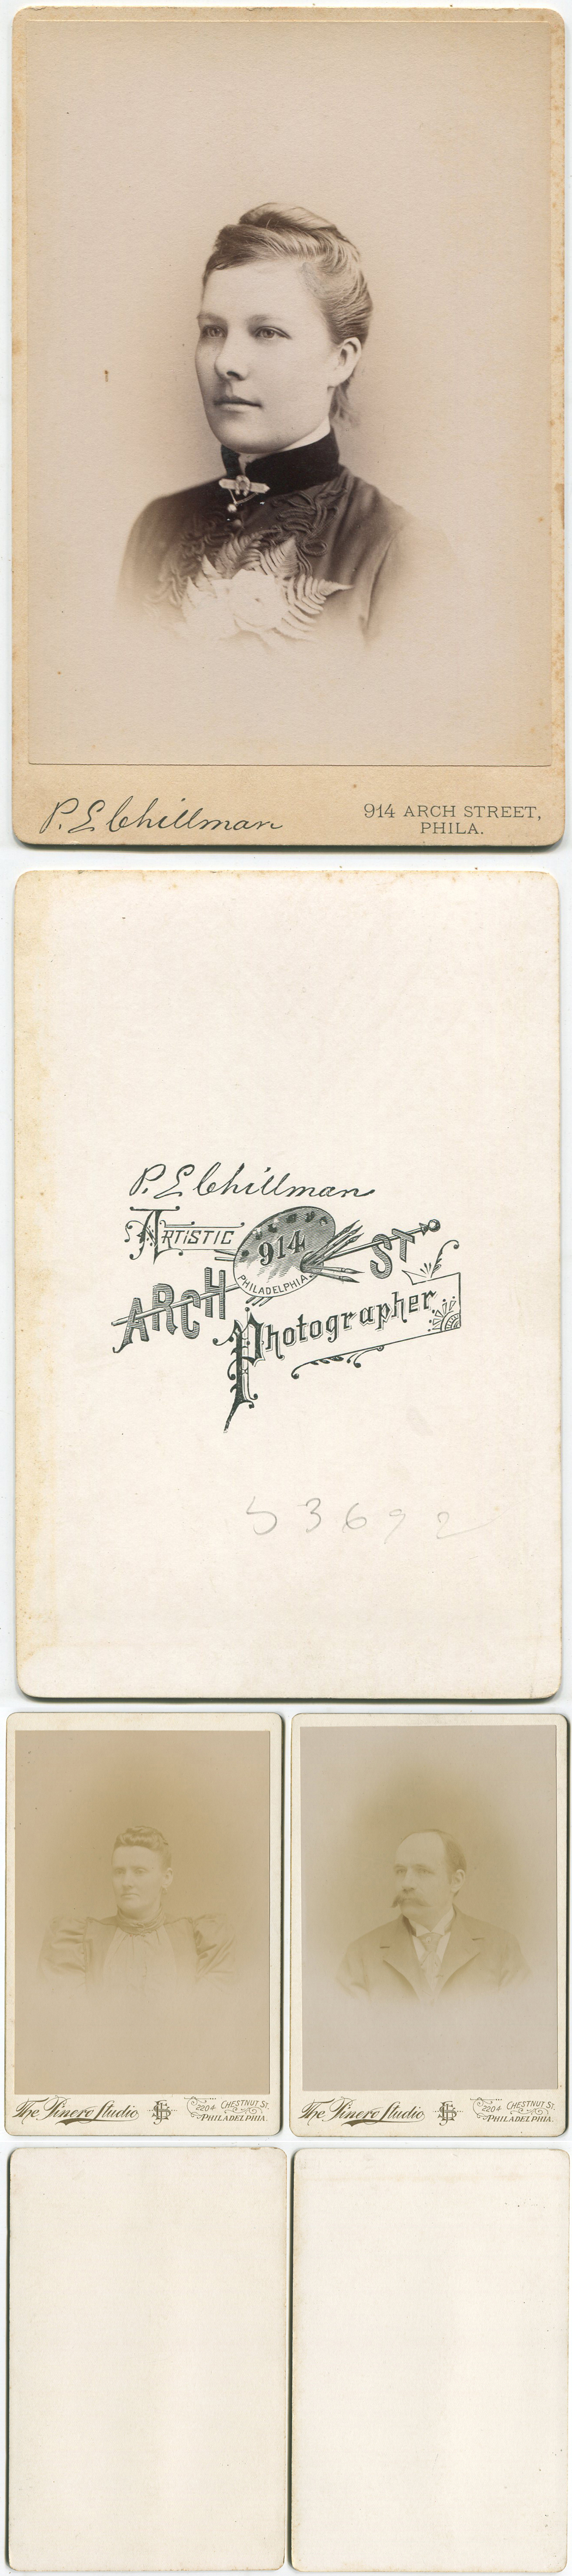 P. E. Chillman
914 ARCH STREET,
PHILA.
P. E. Chillman
ARTISTIC
914
PHILADELPHIA.
ARCH ST
Photographer
53692
The Pinero Studio
2204 CHESTNUT ST.
PHILADELPHIA.
The Pinero Studio
2204 CHESTNUT ST.
PHILADELPHIA.